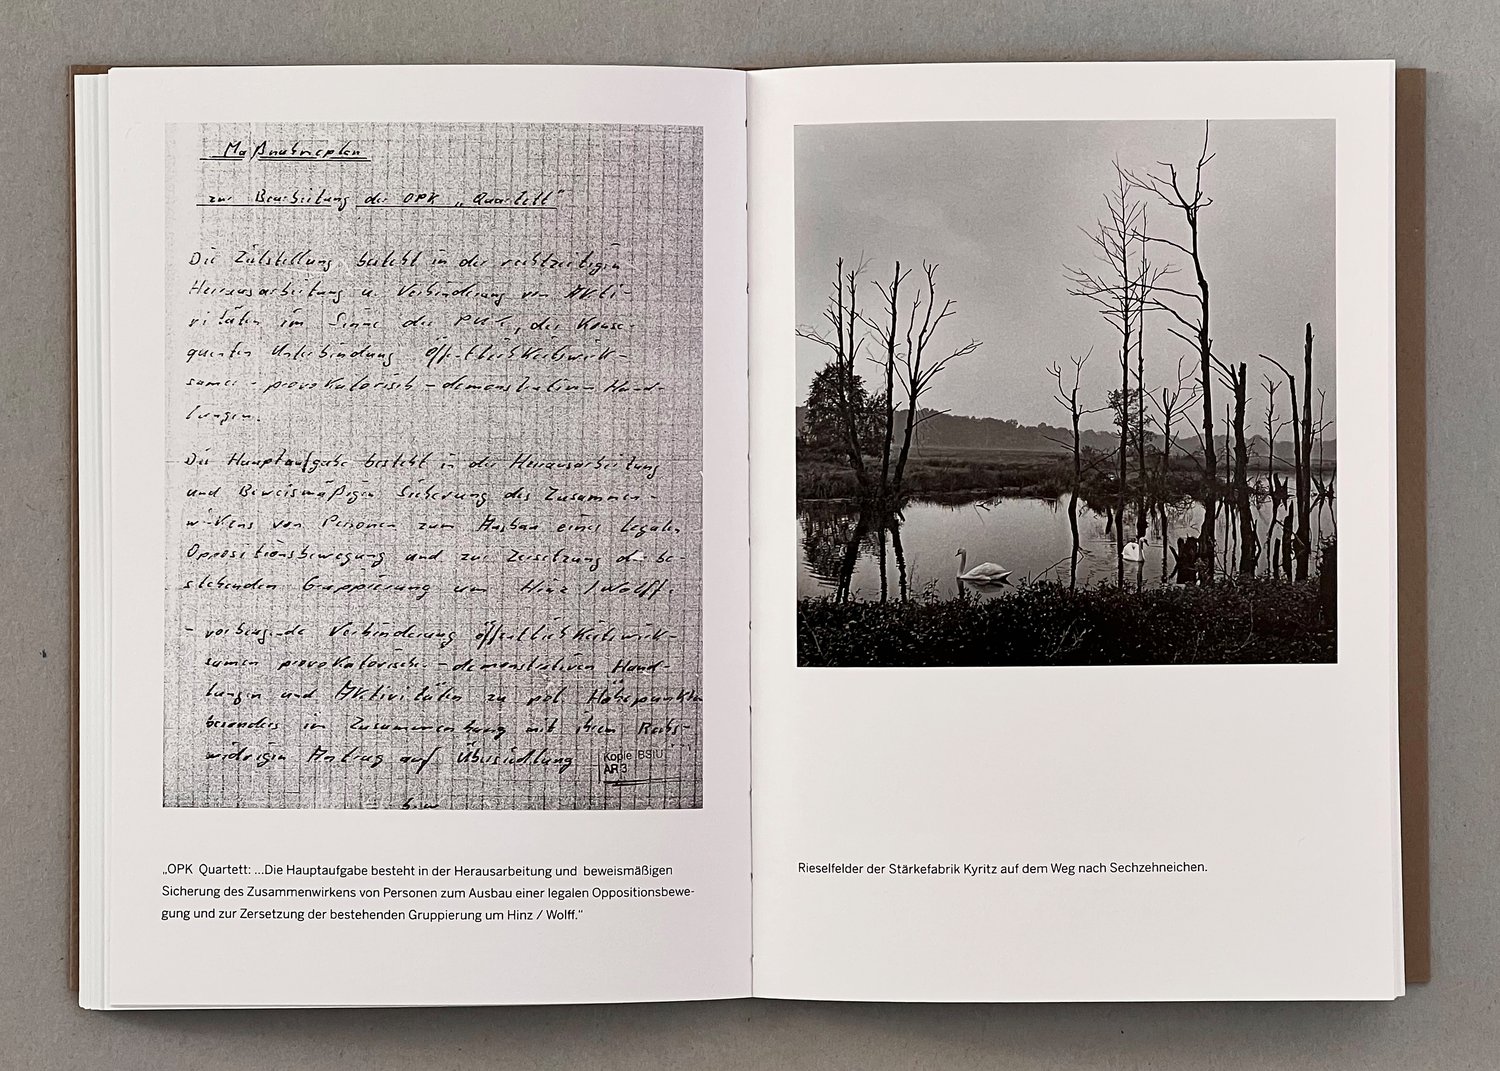 Maßnahmeplan
zur Bearbeitung der OPK „Quartett"
Die Zielstellung besteht in der rechtzeitigen
Herausarbeitung u. Verhinderung von Akti-
vitäten im Sinne der PUT, der konse-
quenten Unterbindung öffentlichkeitswirk-
samer provokatorisch-demonstrativer Hand-
lungen.
Die Hauptaufgabe besteht in der Herausarbeitung
und Beweismäßigen Sicherung des Zusammen-
wirkens von Personen zum Ausbau einer legalen
Oppositionsbewegung und zur Zersetzung der be-
stehenden Gruppierung um Hinz / Wolff.
- vorbeugende Verhinderung öffentlichkeitswirk-
samen provokatorischen-demonstrativen Hand-
lungen und Aktivitäten zu pol. Höhepunkten
besonders im Zusammenhang mit ihrem Rechts-
widrigen Antrag auf Übersiedlung
Kopie BStU
AR 3
„OPK Quartett: ...Die Hauptaufgabe besteht in der Herausarbeitung und beweismäßigen
Sicherung des Zusammenwirkens von Personen zum Ausbau einer legalen Oppositionsbewe-
gung und zur Zersetzung der bestehenden Gruppierung um Hinz / Wolff."
Rieselfelder der Stärkefabrik Kyritz auf dem Weg nach Sechzehneichen.